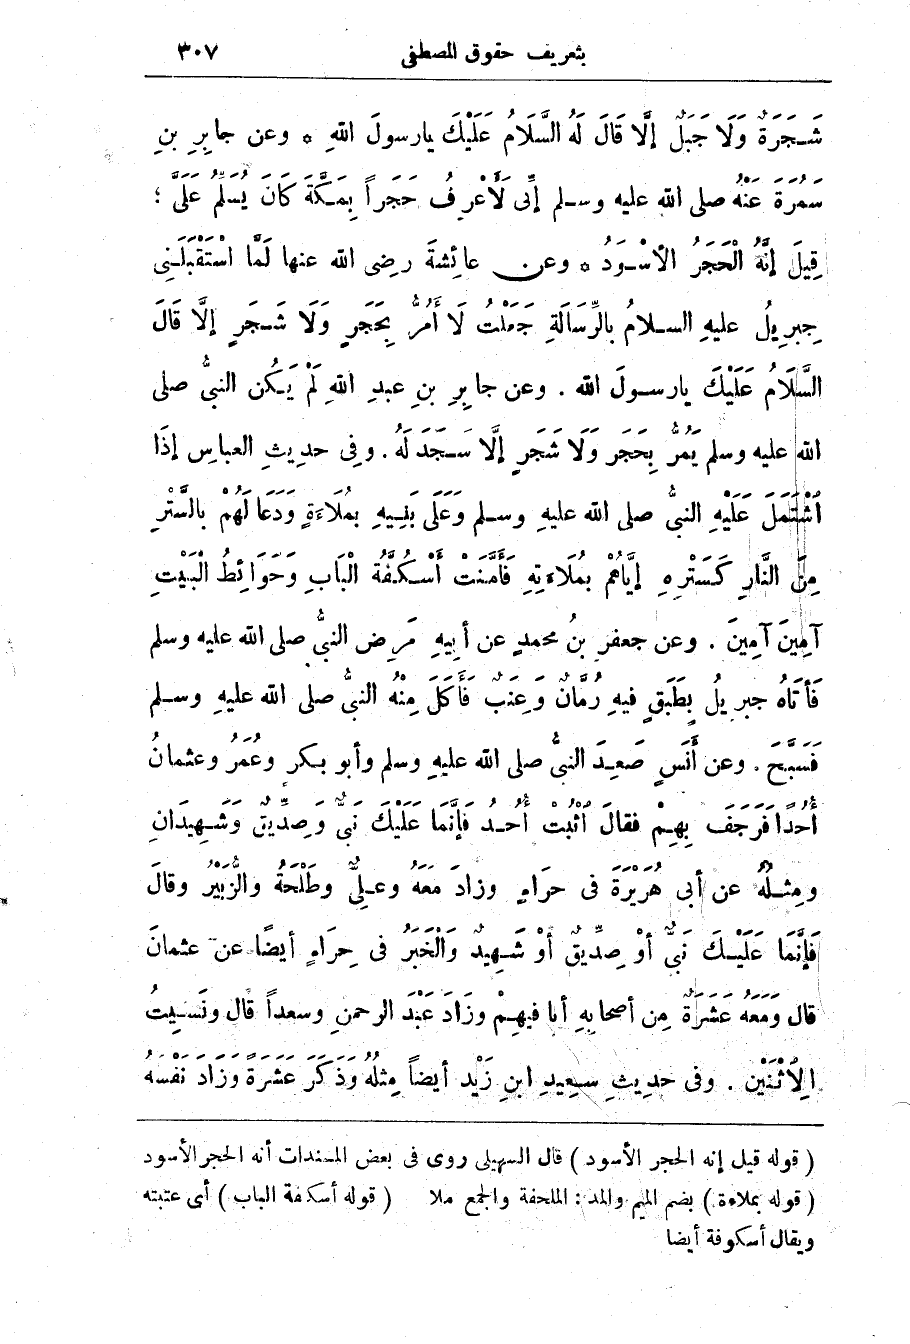 بتعريف حقوق المصطفى ٣٠٧
شَجَرَةٌ وَلَا جَبَلٌ إلَّا قَالَ لَهُ السَّلَامُ عَلَيْكَ يارسولَ اللهِ * وعن جابِرِ بنِ
سَمُرَةَ عَنْهُ صلى الله عليه وسلم إنِّى لَأَعْرِفُ حَجَراً بِمَكَّةَ كَانَ يُسَلِّمُ عَلَىَّ ؛
قِيلَ إنَّهُ الْحَجَرُ الأسْوَدُ * وعن عائِشةَ رضى الله عنها لَمَّا اسْتَقْبَلَنِى
جِبرِيلُ عليهِ السلامُ بالرِّسالَةِ جَعَلْتُ لَا أَمُرُّ بِحَجَرٍ وَلَا شَجَرٍ إلَّا قَالَ
السَّلَامُ عَلَيْكَ يارسولَ الله . وعن جابِرِ بنِ عبدِ اللهِ لَمْ يَكُن النبىُّ صلى
الله عليه وسلم يَمُرُّ بِحَجَرٍ وَلَا شَجَرٍ إلَّا سَجَدَ لَهُ . وفى حديثِ العباسِ إذَا
اشْتَمَلَ عَلَيْهِ النبىُّ صلى الله عليهِ وسلم وَعَلَى بَنِيهِ بمُلَاءَةٍ وَدَعَا لَهُمْ بالسَّتْرِ
مِنَ النَّارِ كَسَتْرِهِ إيَّاهُمْ بمُلَاءَتِهِ فَأَمَّنَتْ أُسْكُفَّةُ الْبَابِ وَحَوَائِطُ الْبَيْتِ
آمِينَ آمِينَ . وعن جعفرِ بنُ محمدٍ عن أبِيهِ مَرِضَ النبىُّ صلى الله عليه وسلم
فَأَتَاهُ جبرِيلُ بِطَبَقٍ فيهِ رُمَّانٌ وَعِنَبٌ فَأَكَلَ مِنْهُ النبىُّ صلى الله عليهِ وسلم
فَسَبَّحَ . وعن أَنَسٍ صَعِدَ النبىُّ صلى الله عليهِ وسلم وأبو بكرٍ وعُمَرُ وعثمانُ
أُحُدًا فَرَجَفَ بِهِمْ فقالَ اثْبُتْ أُحُدُ فَإِنَّمَا عَلَيْكَ نَبِىٌّ وَصِدِّيقٌ وَشَهِيدَانِ
ومِثلُهُ عن أبى هُرَيْرَةَ فى حِرَاءٍ وزادَ مَعَهُ وعلىٌّ وطَلْحَةُ والزُّبَيْرُ وقالَ
فَإِنَّمَا عَلَيْكَ نَبِىٌّ أوْ صِدِّيقٌ أوْ شَهِيدٌ وَالْخَبَرُ فى حِرَاءٍ أيضًا عن عثمانَ
قال وَمَعَهُ عَشَرَةٌ مِن أصحابِهِ أنا فيهِمْ وزَادَ عَبْدَ الرحمنِ وسعداً قال ونَسِيتُ
الِاثْنَيْنِ . وفى حديثِ سعِيدِ ابنِ زَيْدٍ أيضاً مِثلُهُ وَذَكَرَ عَشَرَةً وَزَادَ نَفْسَهُ
( قوله قيل إنه الحجر الأسود ) قال السهيلى روى فى بعض المسندات أنه الحجر الأسود
( قوله بملاءة ) بضم الميم والمد : الملحفة والجمع ملا ( قوله أسكفة الباب ) أى عتبته
ويقال أسكوفة أيضا